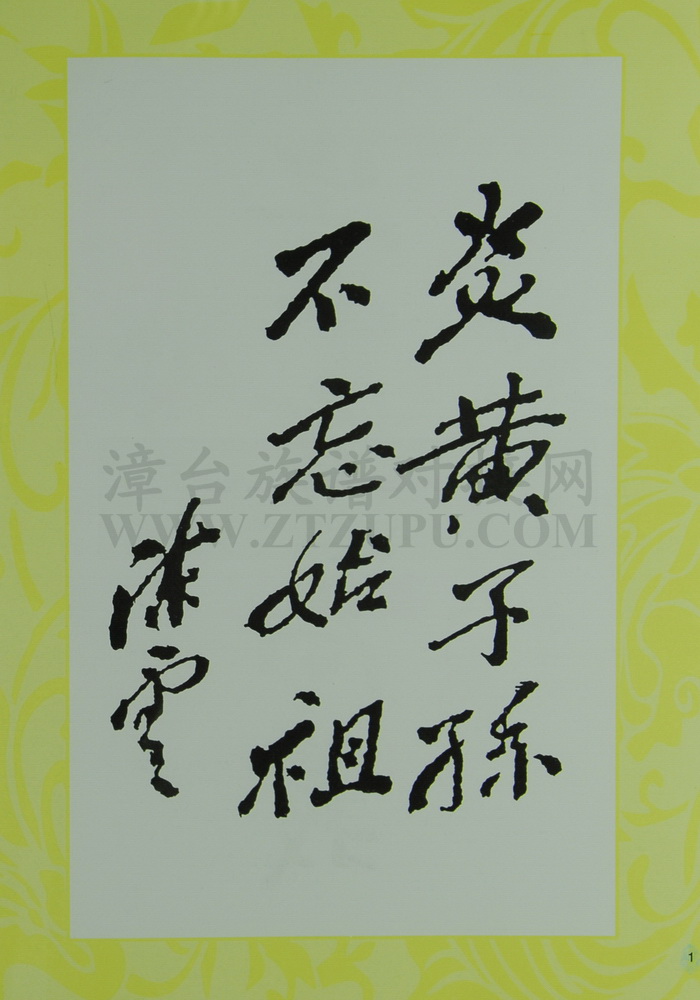 炎黄子孫
不忘始祖
陳雲
漳台族谱对接网
WWW.ZTZUPU.COM
1